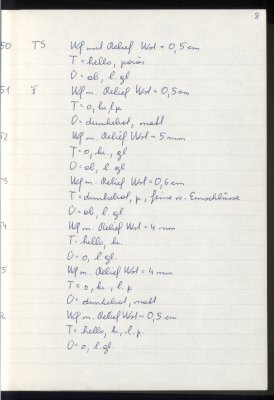 8
50 TS Wf mit Relief Wst = 0,5 cm
T = hello, porös
O = ob, l. gl
51 F Wf m. Relief Wst = 0,5 cm
T = o, kr, l. p
O = dunkelrot, matt
52 Wf m. Relief Wst = 5 mm
T = o, kr., gl
O = ob, l. gl
53 Wf m. Relief Wst = 0,6 cm
T = dunkelrot, p, feine w. Einschlüsse
O = ob, l. gl
54 Wf m. Relief Wst = 4 mm
T = hello, kr.
O = o, l. gl.
55 Wf m. Relief Wst = 4 mm
T = o, kr., l. p
O = dunkelrot, matt
Wf m. Relief Wst = 0,5 cm
T = hello, kr, l. p
O = o, l. gl.